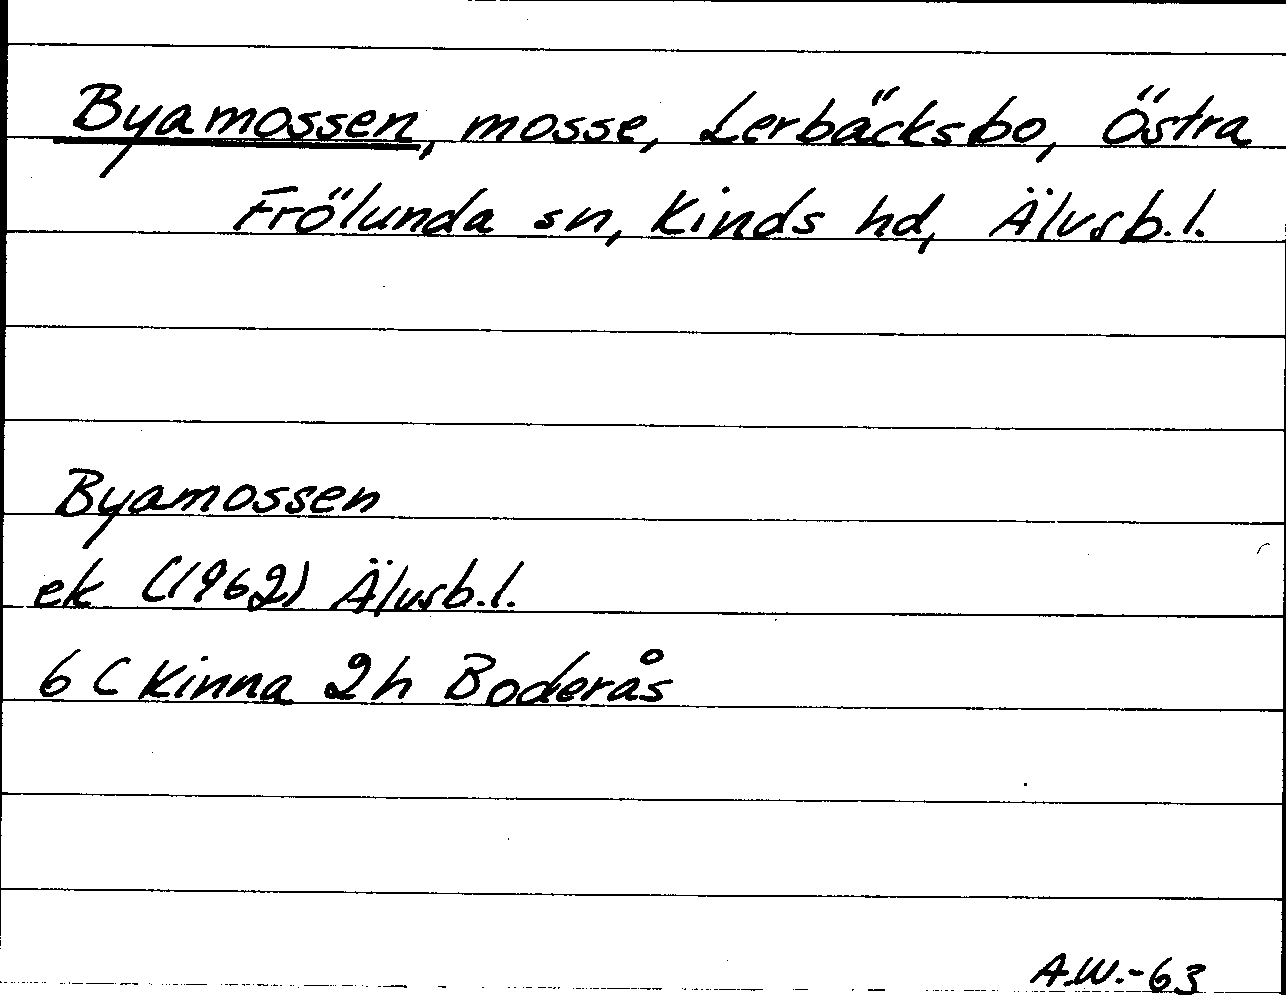 Byamossen, mosse, Lerbäcksbo, Östra
Frölunda sn, Kinds hd, Älvsb.l.
Byamossen
ek (1962) Älvsb.l.
6 C Kinna 2h Boderås
A.W.-63